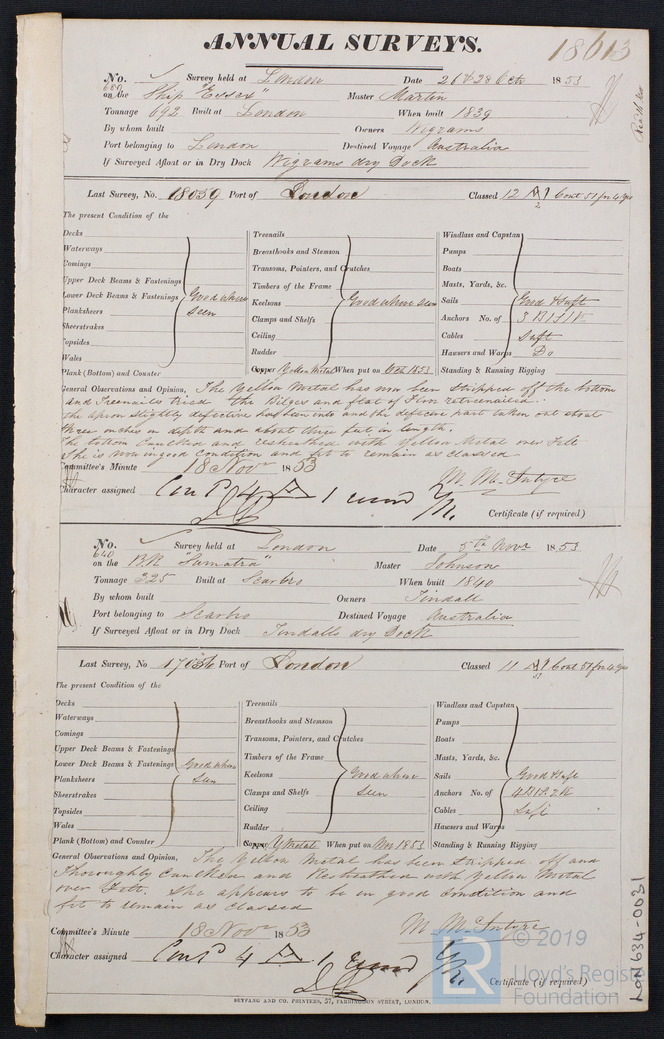 ANNUAL SURVEYS.
18613
No. 680 Survey held at London Date 26 & 28 Octr 1853
on the Ship "Essex" Master Martin
Tonnage 692 Built at London When built 1839
By whom built Owners Wigrams
Port belonging to London Destined Voyage Australia
If Surveyed Afloat or in Dry Dock Wigrams dry Dock
Last Survey, No. 18039 Port of London Classed 12 A1 Cont 51 for 4 yrs
The present Condition of the
Decks Treenails Windlass and Capstan
Waterways Breasthooks and Stemson Pumps
Comings Transoms, Pointers, and Crutches Boats
Upper Deck Beams & Fastenings Timbers of the Frame Masts, Yards, &c.
Lower Deck Beams & Fastenings Good where Keelsons Good where seen Sails Good & Saft
Planksheers seen Clamps and Shelfs Anchors No. of 3 B1S1K
Sheerstrakes Ceiling Cables Saft
Topsides Rudder Hausers and Warps Do
Wales Copper Yellow Metal When put on Oct 1853 Standing & Running Rigging
Plank (Bottom) and Counter
General Observations and Opinion, The Yellow Metal has now been stripped off the bottom
and Treenails tried the Bilges and flat of Floor retreenailed.
the apron slightly defective has been into and the defective part taken out about
three inches in depth and about three feet in length.
The bottom Caulked and resheathed with Yellow Metal over Felt
She is now in good Condition and fit to remain as Classed
Committee's Minute 18 Novr 1853 M. McIntyre
Character assigned Cont'd 4 A 1
Certificate (if required)
No. 640 Survey held at London Date 5th Novr 1853
on the BK "Sumatra" Master Johnson
Tonnage 325 Built at Scarbro When built 1840
By whom built Owners Tindall
Port belonging to Scarbro Destined Voyage Australia
If Surveyed Afloat or in Dry Dock Tindalls dry Dock
Last Survey, No 17036 Port of London Classed 11 A1 Cont 51 for 4 yrs
The present Condition of the
Decks Treenails Windlass and Capstan
Waterways Breasthooks and Stemson Pumps
Comings Transoms, Pointers, and Crutches Boats
Upper Deck Beams & Fastenings Timbers of the Frame Masts, Yards, &c.
Lower Deck Beams & Fastenings Good where Keelsons Good where Sails Good & Saft
Planksheers seen Clamps and Shelfs seen Anchors No. of 4B1S2K
Sheerstrakes Ceiling Cables Saft
Topsides Rudder Hausers and Warps
Wales Copper Y Metal When put on Nov 1853 Standing & Running Rigging
Plank (Bottom) and Counter
General Observations and Opinion, The Yellow Metal has been stripped off and
Thoroughly Caulked and Resheathed with Yellow Metal
over Felt. She appears to be in good Condition and
fit to remain as Classed
Committee's Minute 18 Novr 1853 M McIntyre
Character assigned Cont'd 4 A 1
Certificate (if required)
SEYFANG AND CO. PRINTERS, 57, FARRINGDON STREET, LONDON.
LR © 2019
Lloyd's Register
Foundation
LON634-0031